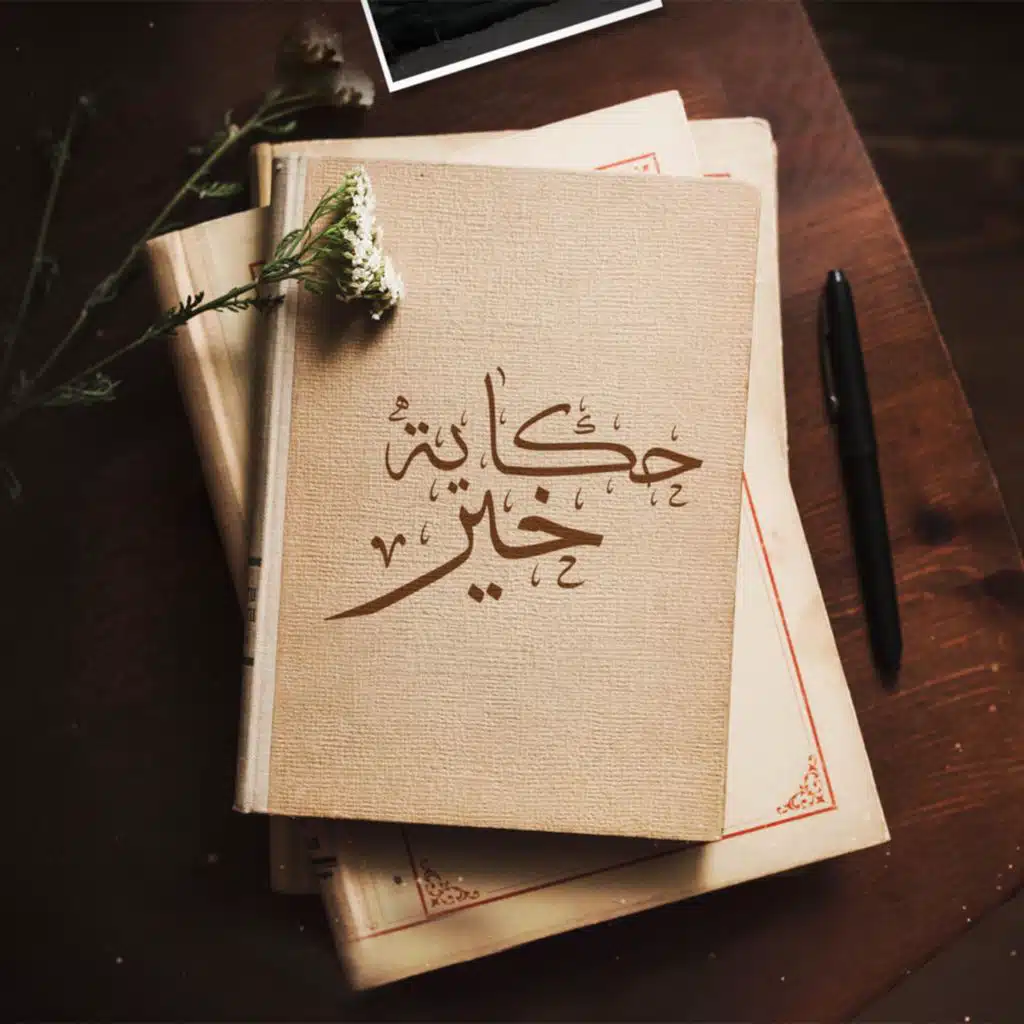 حكايةٌ
خير